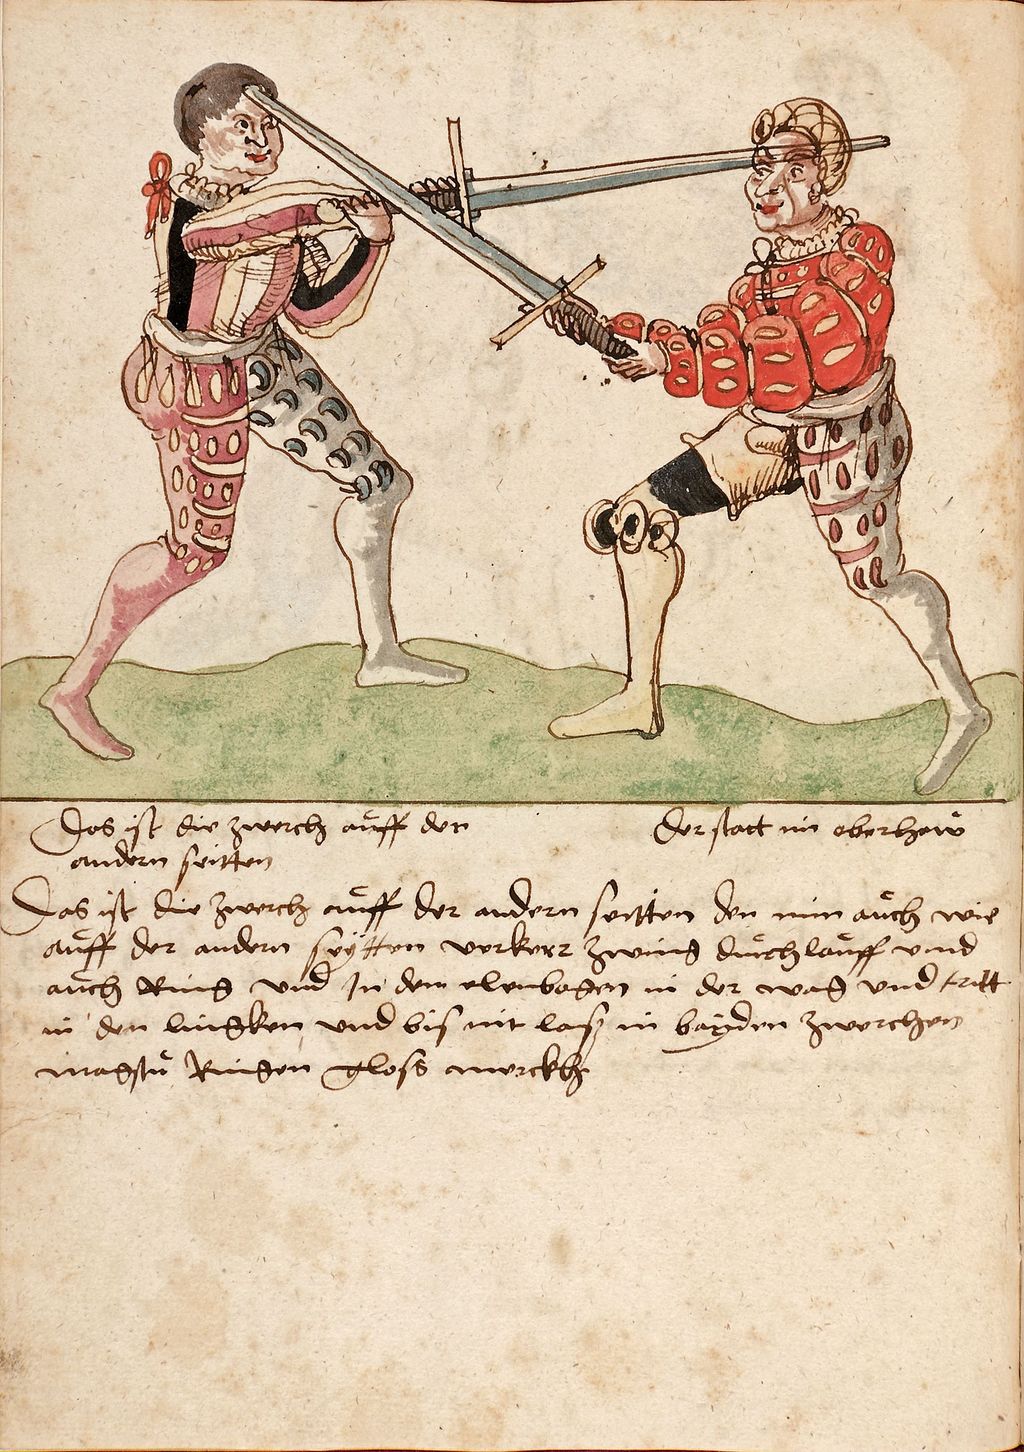 Das ist die zwerch auff der
andern seitten
der statt im oberhaw
Das ist die zwerch auff der andern seitten den nim auch wie
auff der andern seytten verkerr zwing durchlauff vnd
auch Ring vnd In dem elenbogen in der wag vnd tritt
in den lingken vnd bis nit las in bayden zwerchen
magstu Ringen gloss merckh